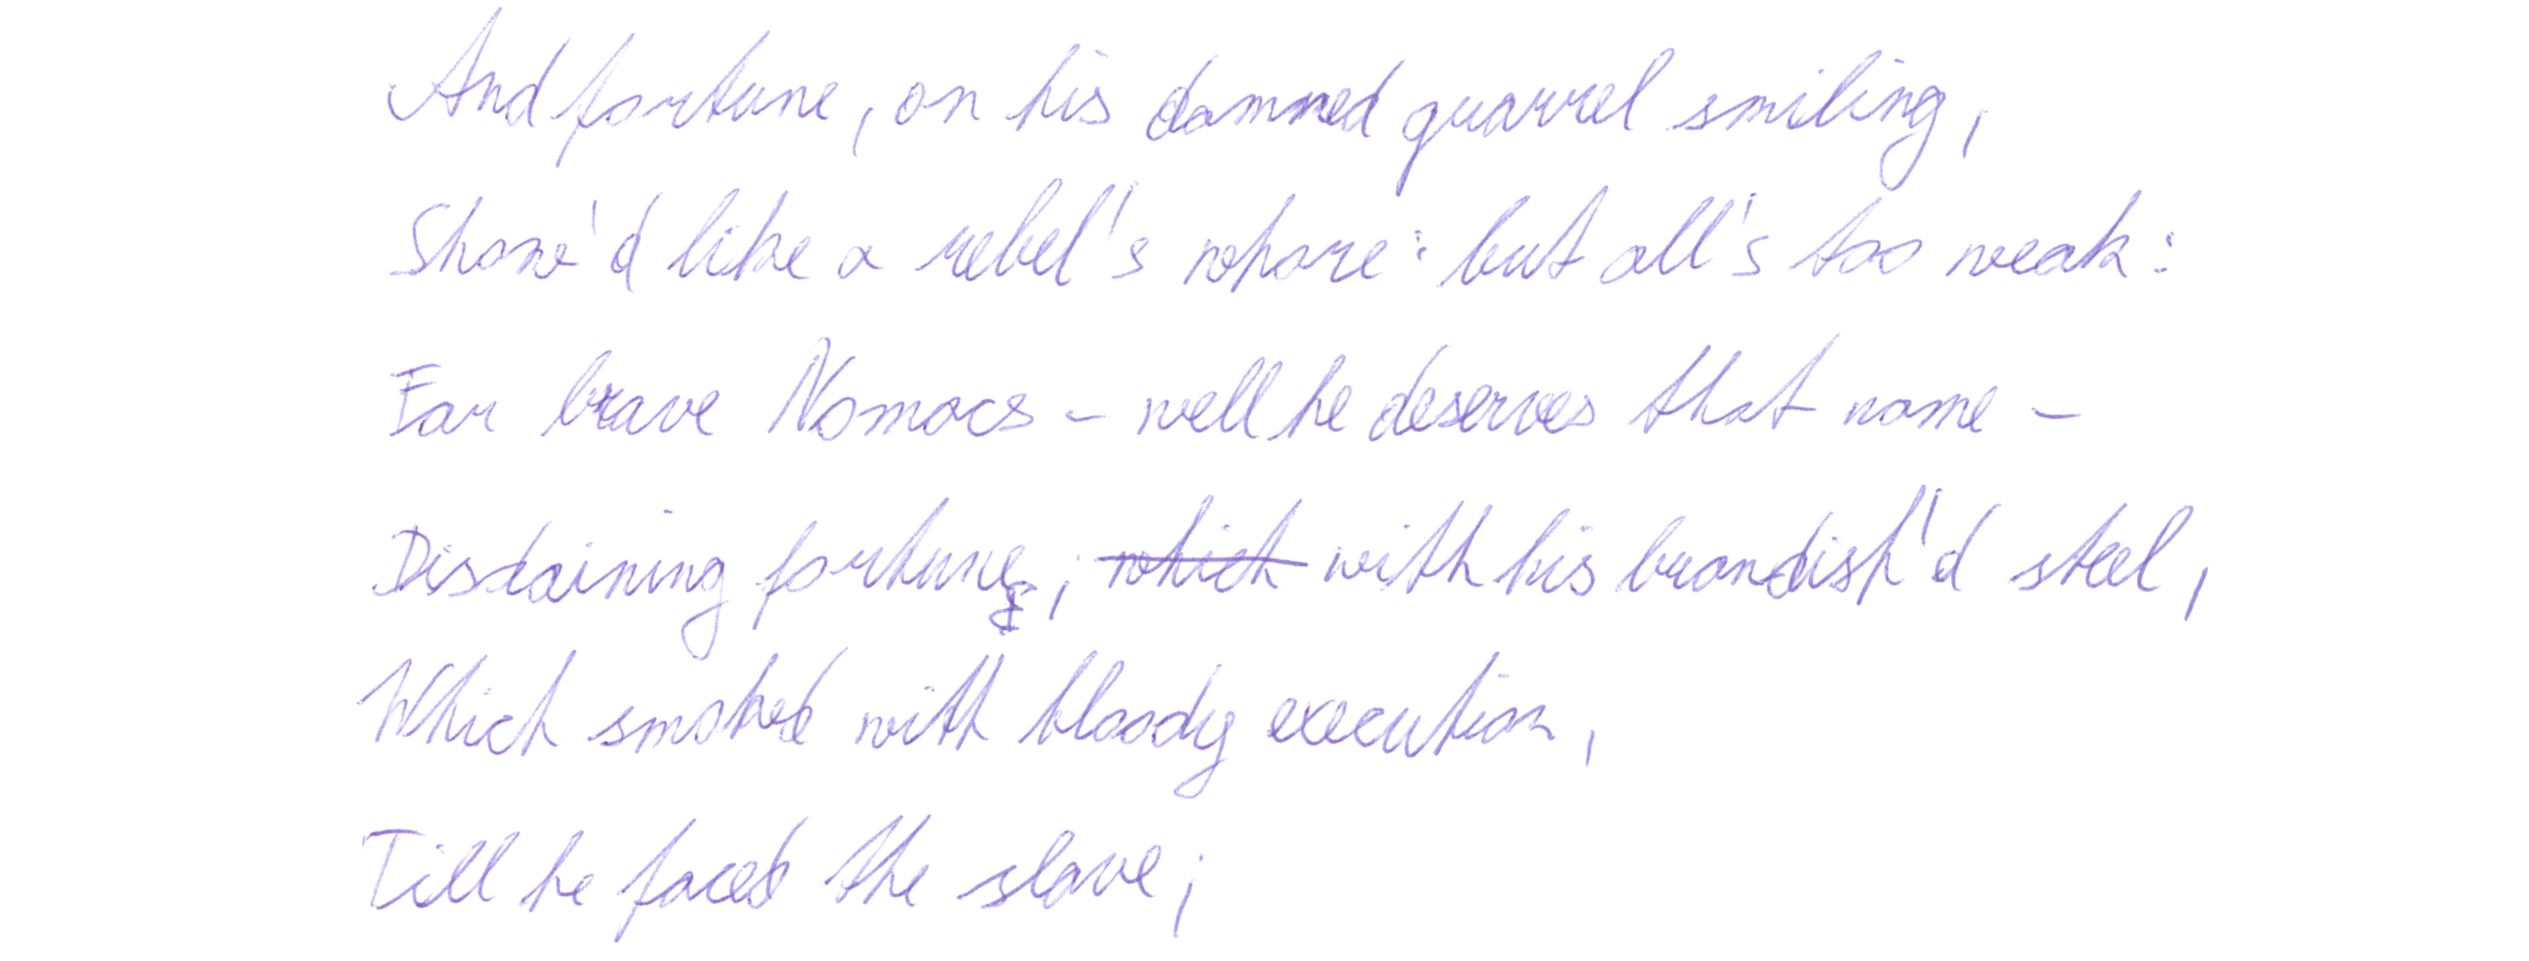 And fortune, on his damned quarrel smiling,
Show'd like a rebel's whore: but all's too weak:
For brave Nomacs - well he deserves that name -
Disdaining fortune, which with his brandish'd steel,
Which smoked with bloody execution,
Till he faced the slave;